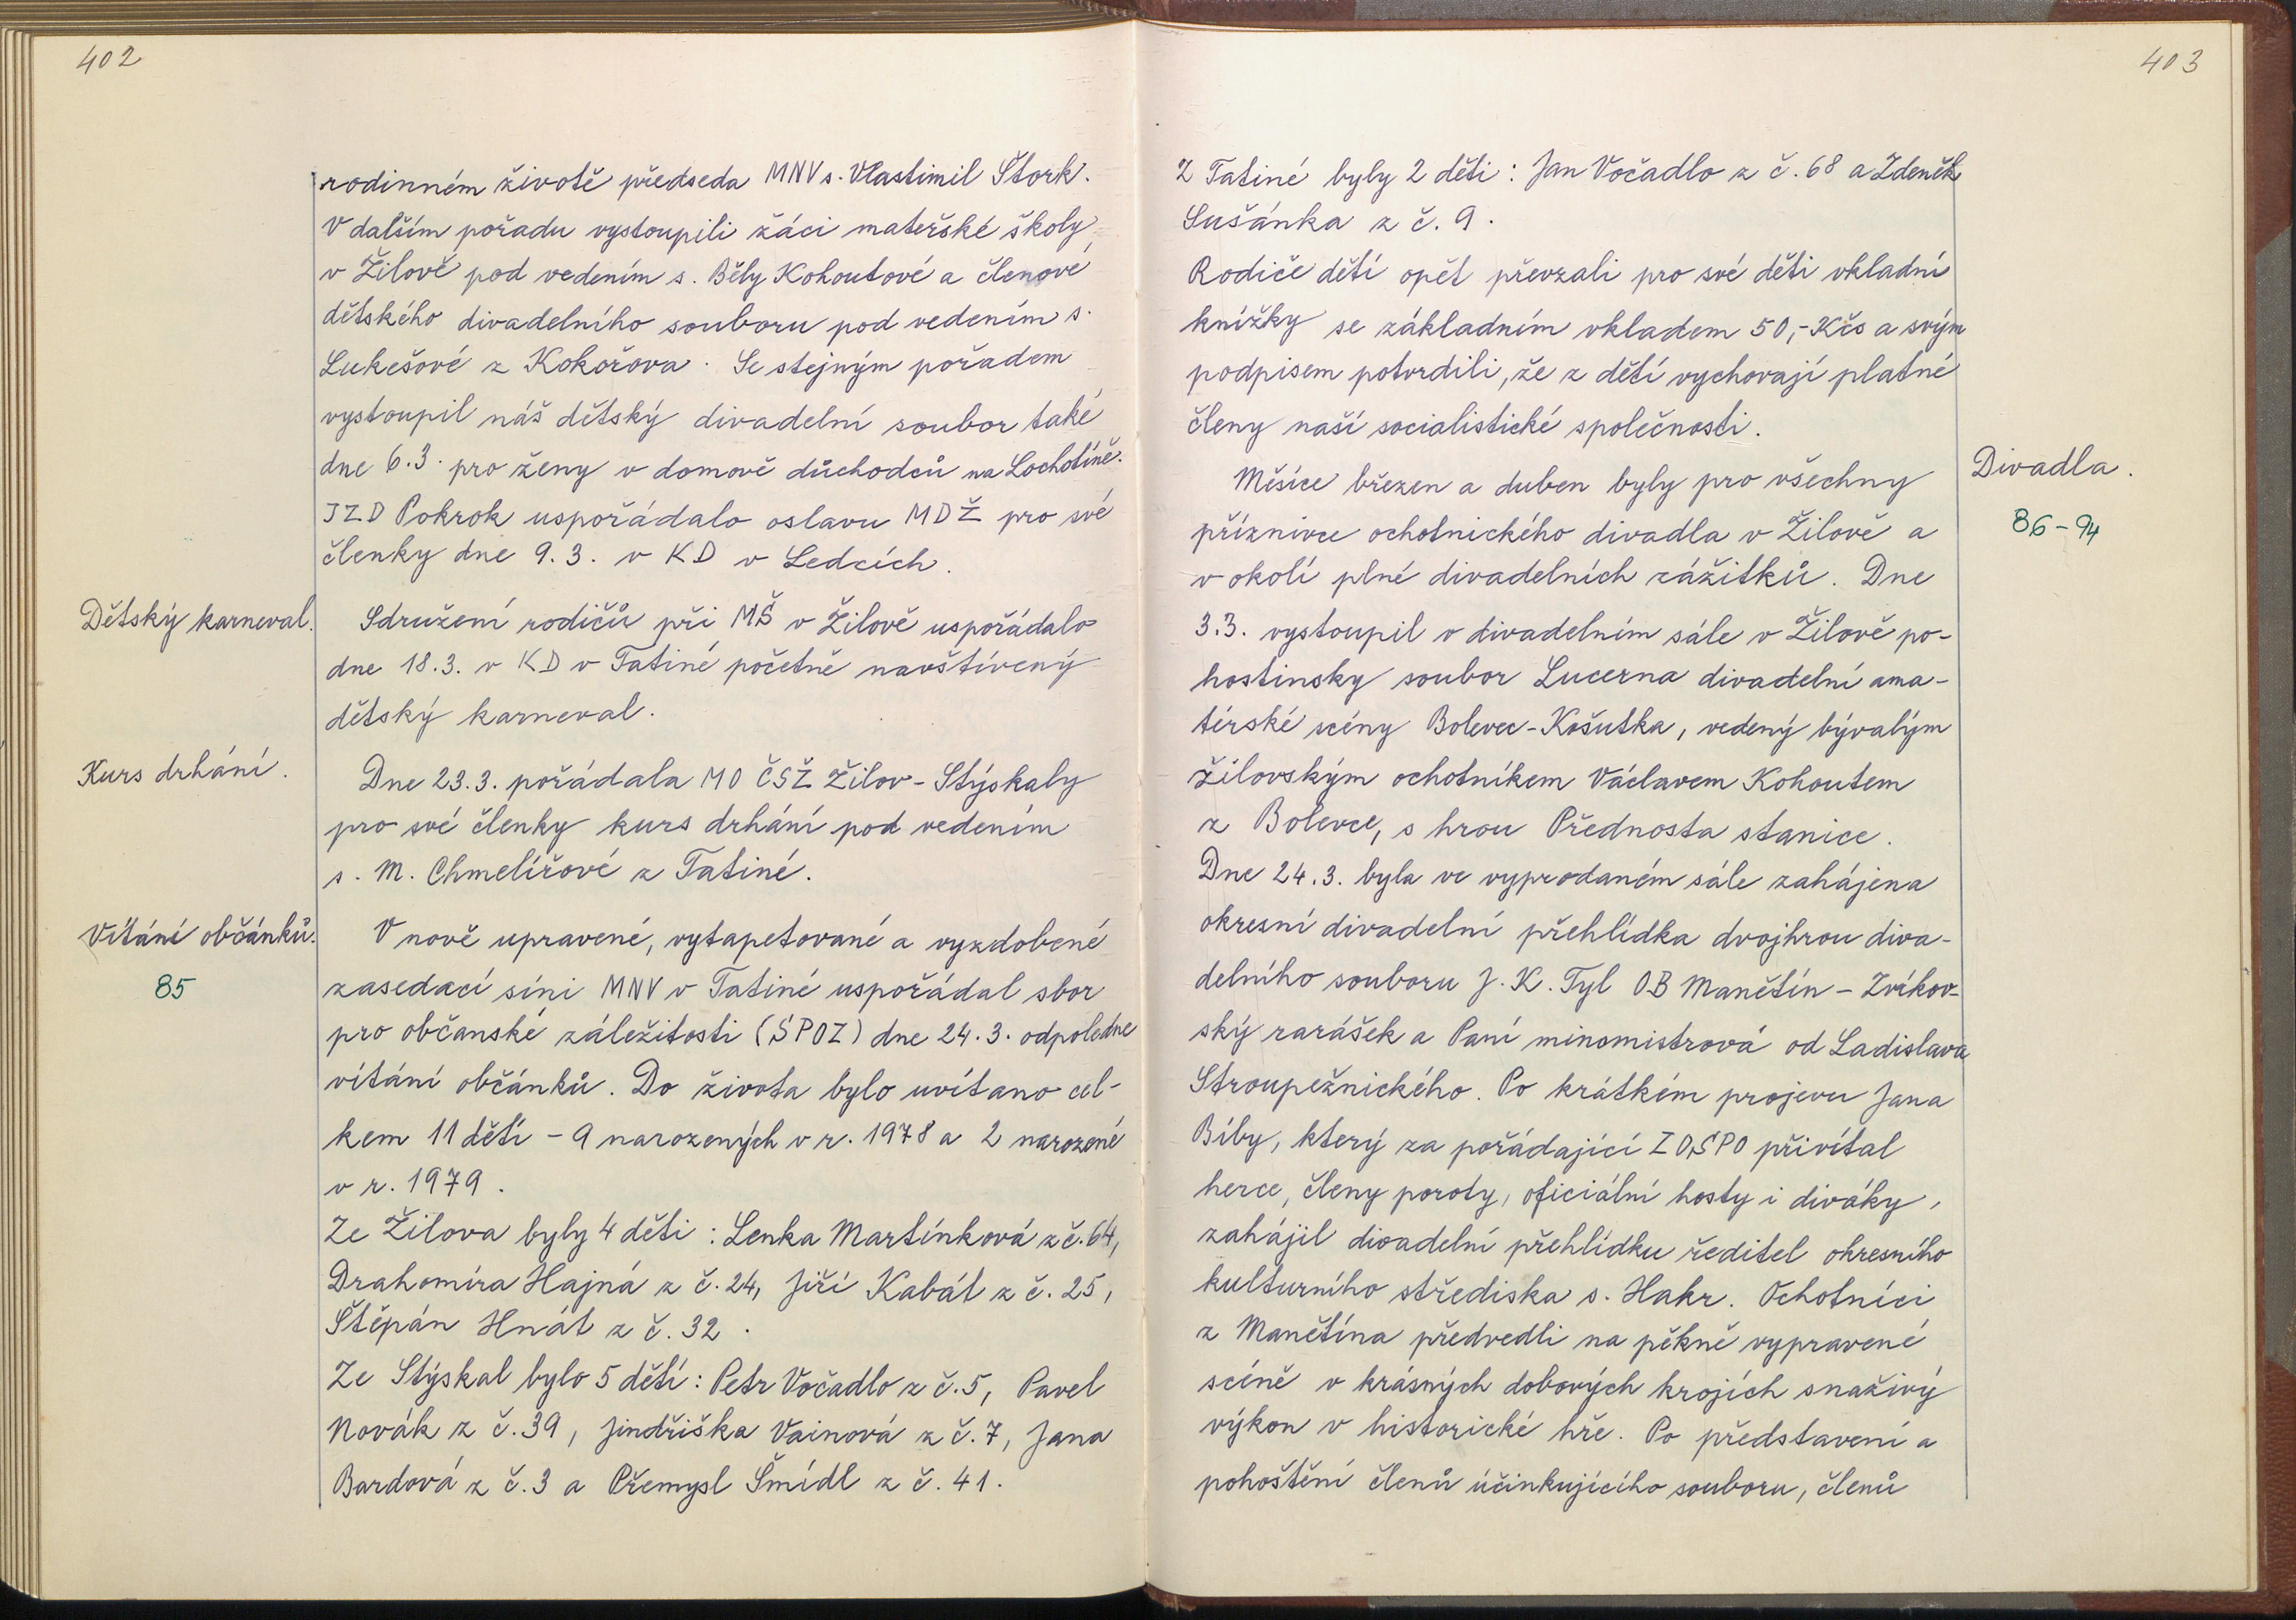 402
rodinném životě předseda MNV s. Vlastimil Štork.
V dalším pořadu vystoupili žáci mateřské školy
v Žilově pod vedením s. Běly Kohoutové a členové
dětského divadelního souboru pod vedením s.
Lukešové z Kokořova. Se stejným pořadem
vystoupil náš dětský divadelní soubor také
dne 6.3. pro ženy v domově důchodců na Lochotíně.
JZD Pokrok uspořádalo oslavu MDŽ pro své
členky dne 9.3. v KD v Ledcích.
Dětský karneval.
Sdružení rodičů při MŠ v Žilově uspořádalo
dne 18.3. v KD v Tatiné početně navštívený
dětský karneval.
Kurs drhání.
Dne 23.3. pořádala MO ČSŽ Žilov - Stýskaly
pro své členky kurs drhání pod vedením
s. M. Chmelířové z Tatiné.
Vítání občánků.
85
V nově upravené, vytapetované a vyzdobené
zasedací síni MNV v Tatiné uspořádal sbor
pro občanské záležitosti (SPOZ) dne 24.3. odpoledne
vítání občánků. Do života bylo uvítano cel-
kem 11 dětí - 9 narozených v r. 1978 a 2 narozené
v r. 1979.
Ze Žilova byly 4 děti: Lenka Martínková z č. 64,
Drahomíra Hajná z č. 24, Jiří Kabát z č. 25,
Štěpán Hnát z č. 32.
Ze Stýskal bylo 5 dětí: Petr Vočadlo z č. 5, Pavel
Novák z č. 39, Jindřiška Vainová z č. 7, Jana
Bardová z č. 3 a Přemysl Šmídl z č. 41.
403
Z Tatiné byly 2 děti: Jan Vočadlo z č. 68 a Zdeněk
Sušánka z č. 9.
Rodiče dětí opět převzali pro své děti vkladní
knížky se základním vkladem 50,- Kčs a svým
podpisem potvrdili, že z dětí vychovají platné
členy naší socialistické společnosti.
Divadla.
86-94
Měsíce březen a duben byly pro všechny
příznivce ochotnického divadla v Žilově a
v okolí plné divadelních zážitků. Dne
3.3. vystoupil v divadelním sále v Žilově po-
hostinsky soubor Lucerna divadelní ama-
térské scény Bolevec-Košutka, vedený bývalým
žilovským ochotníkem Václavem Kohoutem
z Bolevce, s hrou Přednosta stanice.
Dne 24.3. byla ve vyprodaném sále zahájena
okresní divadelní přehlídka dvojhrou diva-
delního souboru J. K. Tyl OB Manětín - Zvíkov-
ský rarášek a Paní mincmistrová od Ladislava
Stroupežnického. Po krátkém projevu Jana
Bíby, který za pořádající ZOSPO přivítal
herce, členy poroty, oficiální hosty i diváky,
zahájil divadelní přehlídku ředitel okresního
kulturního střediska s. Hakr. Ochotníci
z Manětína předvedli na pěkně vypravené
scéně v krásných dobových krojích snaživý
výkon v historické hře. Po představení a
pohoštění členů účinkujícího souboru, členů